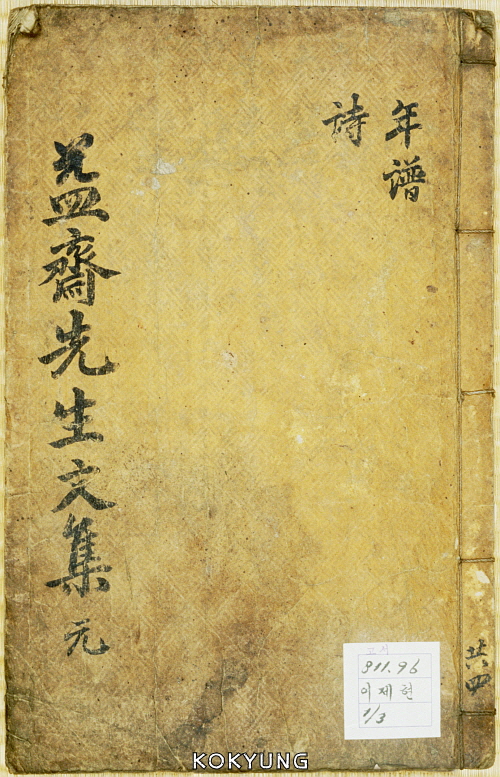 年譜
詩
益齋先生文集 元
共四
고서
911.96
이제현
1/3
KOKYUNG